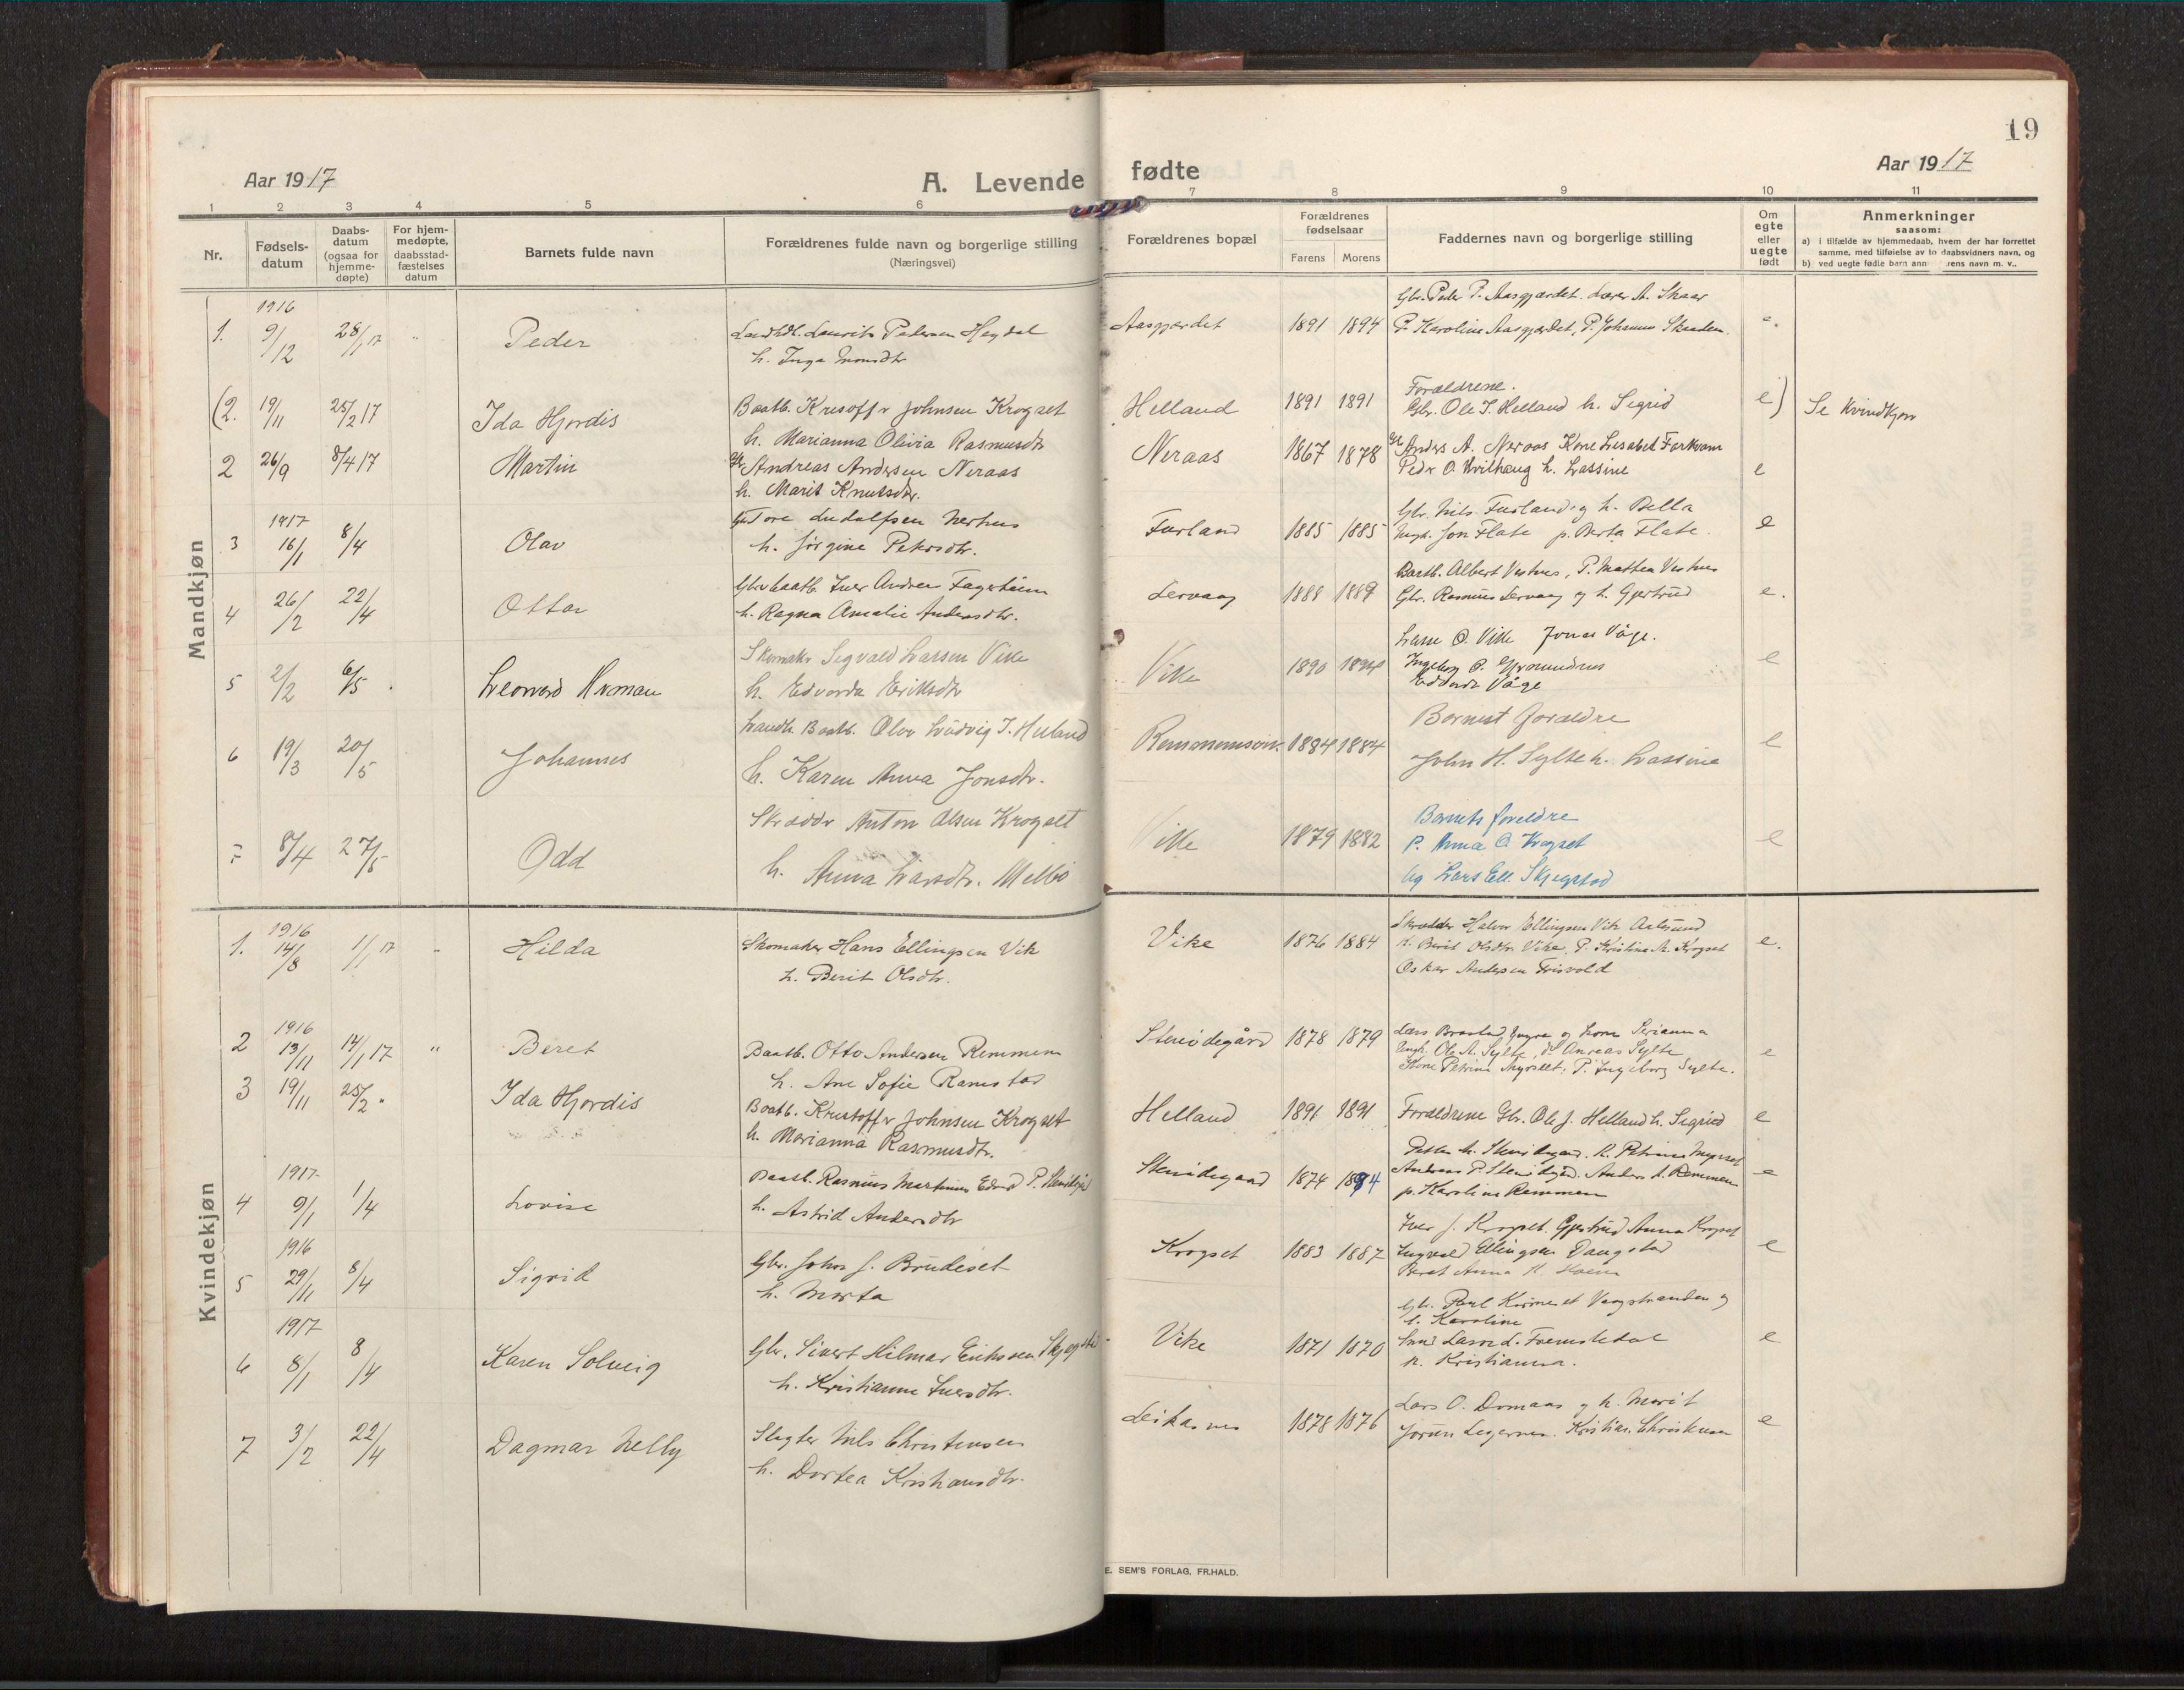 19
Aar 1917
A. Levende fødte
Aar 1917
1 2 3 4 5 6 7 8 9 10 11
Nr.
Fødsels-
datum
Daabs-
datum
(ogsaa for
hjemme-
døpte)
For hjem-
medøpte,
daabsstad-
fæstelses
datum
Barnets fulde navn
Forældrenes fulde navn og borgerlige stilling
(Næringsvei)
Forældrenes bopæl
Forældrenes
fødselsaar
Farens Morens
Faddernes navn og borgerlige stilling
Om
egte
eller
uegte
født
Anmerkninger
saasom:
a) i tilfælde av hjemmedaab, hvem der har forrettet
samme, med tilføielse av to daabsvidners navn, og
b) ved uegte fødte barn navn m. v..
Mandkjøn
1916
1. 9/12 28/1 17 " Peder
Pedersen Hegdal
h. Inga
Aasgjærdet 1891 1894
Gbr. Peder P. Aasgjærdet. Lærer A. Skaar
P. Karoline Aasgjærdet, P. Johanna
e.
(2. 19/11 25/2 17 Ida Hjordis
Baatb. Kristoffr Johnsen Krogset
h. Marianna Olivia Rasmusdtr
Helland 1891 1891
Forældrene.
Gbr. Ole J. Helland h. Sigrid
e) Se Kvindkjøn
2 26/9 8/4 17 Martin
Gbr Andreas Andersen Neraas
h. Marit Knutsdtr.
Neraas 1867 1878
Gbr Anders A. Neraas Kone Lisabet Farkvam
Pedr O. Kvilhaug h. Lassine
e
1917
3 16/1 8/4 Olav
Tore Ludolfsen Nerhus
h. Jørgine Petersdtr.
Furland 1885 1885
Gbr. Nils Furland og h. Bella
Ungk. Jon Flate p. Berta Flate.
e
4 26/2 22/4 Ottar
Iver Andreas Fagerheim
h. Ragna Amalie Andersdtr.
Lervaag 1888 1889
Baatb. Albert Vestnes, P. Mathea Vestnes
Gbr. Rasmus Lervaag og h. Gjertrud
e.
5 2/2 6/5 . Leonard Herman
Skomakr Sigvald Larsen Vike
h. Edvarda Eriksdtr
Vike 1890
Lasse O. Vike Jonas Våge.
Ingeborg O.
Våge
e
6 19/3 20/5 Johannes
Landh. Baatb. Olav Ludvig J. Helland
h. Karen Anna Jonsdtr.
1884 1884
Barnets forældre
John H. Sylte h. Lassine
e
8/4 27/5 Odd
Skræddr Anton Olsen Krogset
h. Anna Larsdtr. Melbø
Vike 1879 1882
Barnets foreldre
P. Anna O. Krogset
Ug Lars Ell. Skjegstad
e
Kvindekjøn
1916
1. 14/8 1/1 17 - Hilda
Skomaker Hans Ellingsen Vik
h. Berit Olsdtr.
Vike 1876 1884
Skredder Halvor Ellingsen Vik Aalesund
h. Berit Olsdtr Vike. P. Kristine A. Krogset
Oskar Andersen Frisvold
e.
1916
2 13/11 14/1 17 " Beret
Baatb. Otto Andersen Remmem
h. Ane Sofie Ramstad
Stenødegård 1878 1879
Lars Brastad, Yngve og kone Serianna
Ungk. Ole A. Sylte, do Andreas Sylte
Kone Petrine Myrset, P. Ingeborg Sylte.
e
3 19/11 25/2 " Ida Hjordis
Baatb. Kristoffr Johnsen Krogset
h. Marianna Rasmusdtr.
Helland 1891 1891
Forældrene Gbr. Ole J. Helland h. Sigrid
e
1917
4 9/1 1/4 Lovise
Baatb. Rasmus Martinus Edvard P. Stenødegård
h. Astrid Andersdtr
Stenødegaard 1874 1884
Petter h. Stenødegaard. K. Petrine Myrset
Andreas P. Stenødegård. Anders A. Remmem
p. Karoline Remmem
e
1916
5 29/11 8/4 Sigrid
Gbr. Johan J. Brudeset
h. Marta
Krogset 1883 1887
Iver J. Krogset. Gjertrud Anna Krogset
Ingvald Ellingsen Daugstad
Beret Anna
e
1917
6 8/1 8/4 Karen Solveig
Gbr. Sivert Hilmar Eriksen Skjegstad
h. Kristianne Iversdtr.
Vike 1871 1870
Gbr. Paul Vaagstranden og
h. Karoline
Lasse L.
h. Kristianna.
e
7 3/2 22/4 Dagmar Nelly
Slagter Nils Christensen
h. Dortea Kristiansdtr.
Leikarnes 1878 1876
Lars O. Domaas og h. Marit
Kristian Christensen
e
E. SEM'S FORLAG, FR.HALD.